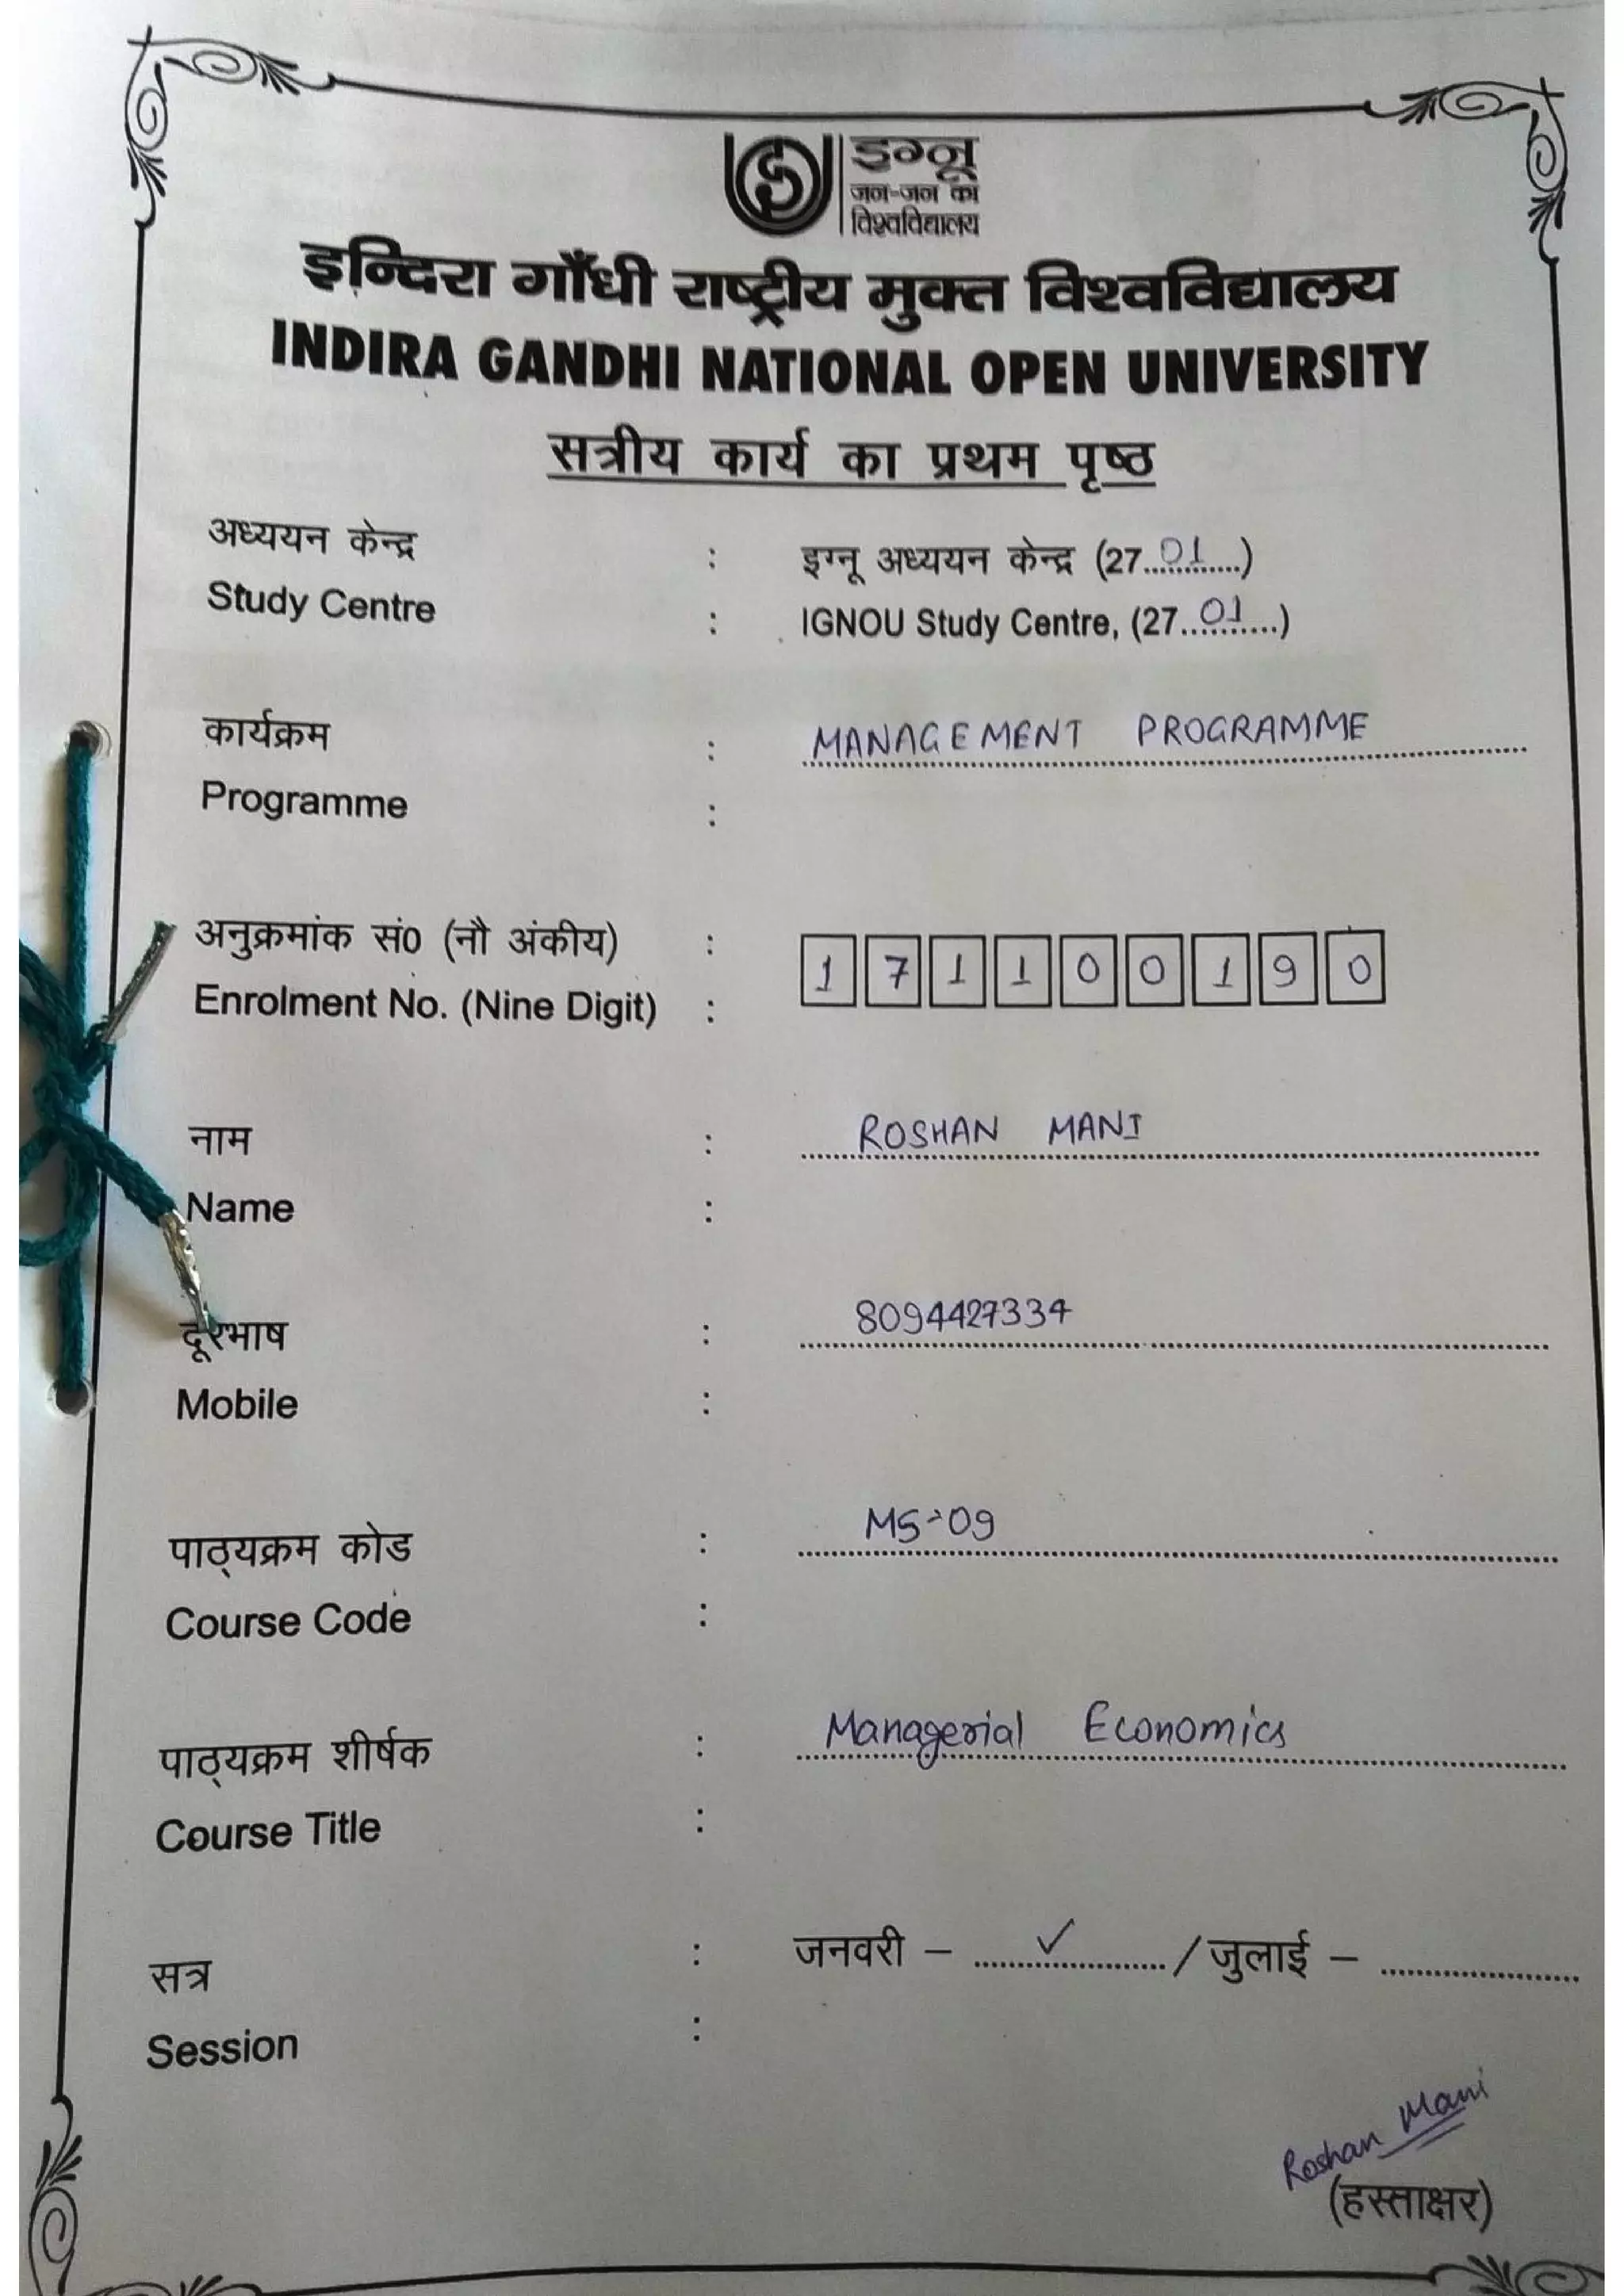 इग्नू
जन-जन का
विश्वविद्यालय
इन्दिरा गाँधी राष्ट्रीय मुक्त विश्वविद्यालय
INDIRA GANDHI NATIONAL OPEN UNIVERSITY
सत्रीय कार्य का प्रथम पृष्ठ
अध्ययन केन्द्र : इग्नू अध्ययन केन्द्र (27...01...)
Study Centre : IGNOU Study Centre, (27...01...)
कार्यक्रम : MANAGEMENT PROGRAMME
Programme :
अनुक्रमांक सं0 (नौ अंकीय) : 1 7 1 1 0 0 1 9 0
Enrolment No. (Nine Digit) :
नाम : ROSHAN MANI
Name :
दूरभाष : 8094427334
Mobile :
पाठ्यक्रम कोड : MS-09
Course Code :
पाठ्यक्रम शीर्षक : Managerial Economics
Course Title :
सत्र : जनवरी – ...✓... / जुलाई – ......
Session :
Roshan Mani
(हस्ताक्षर)